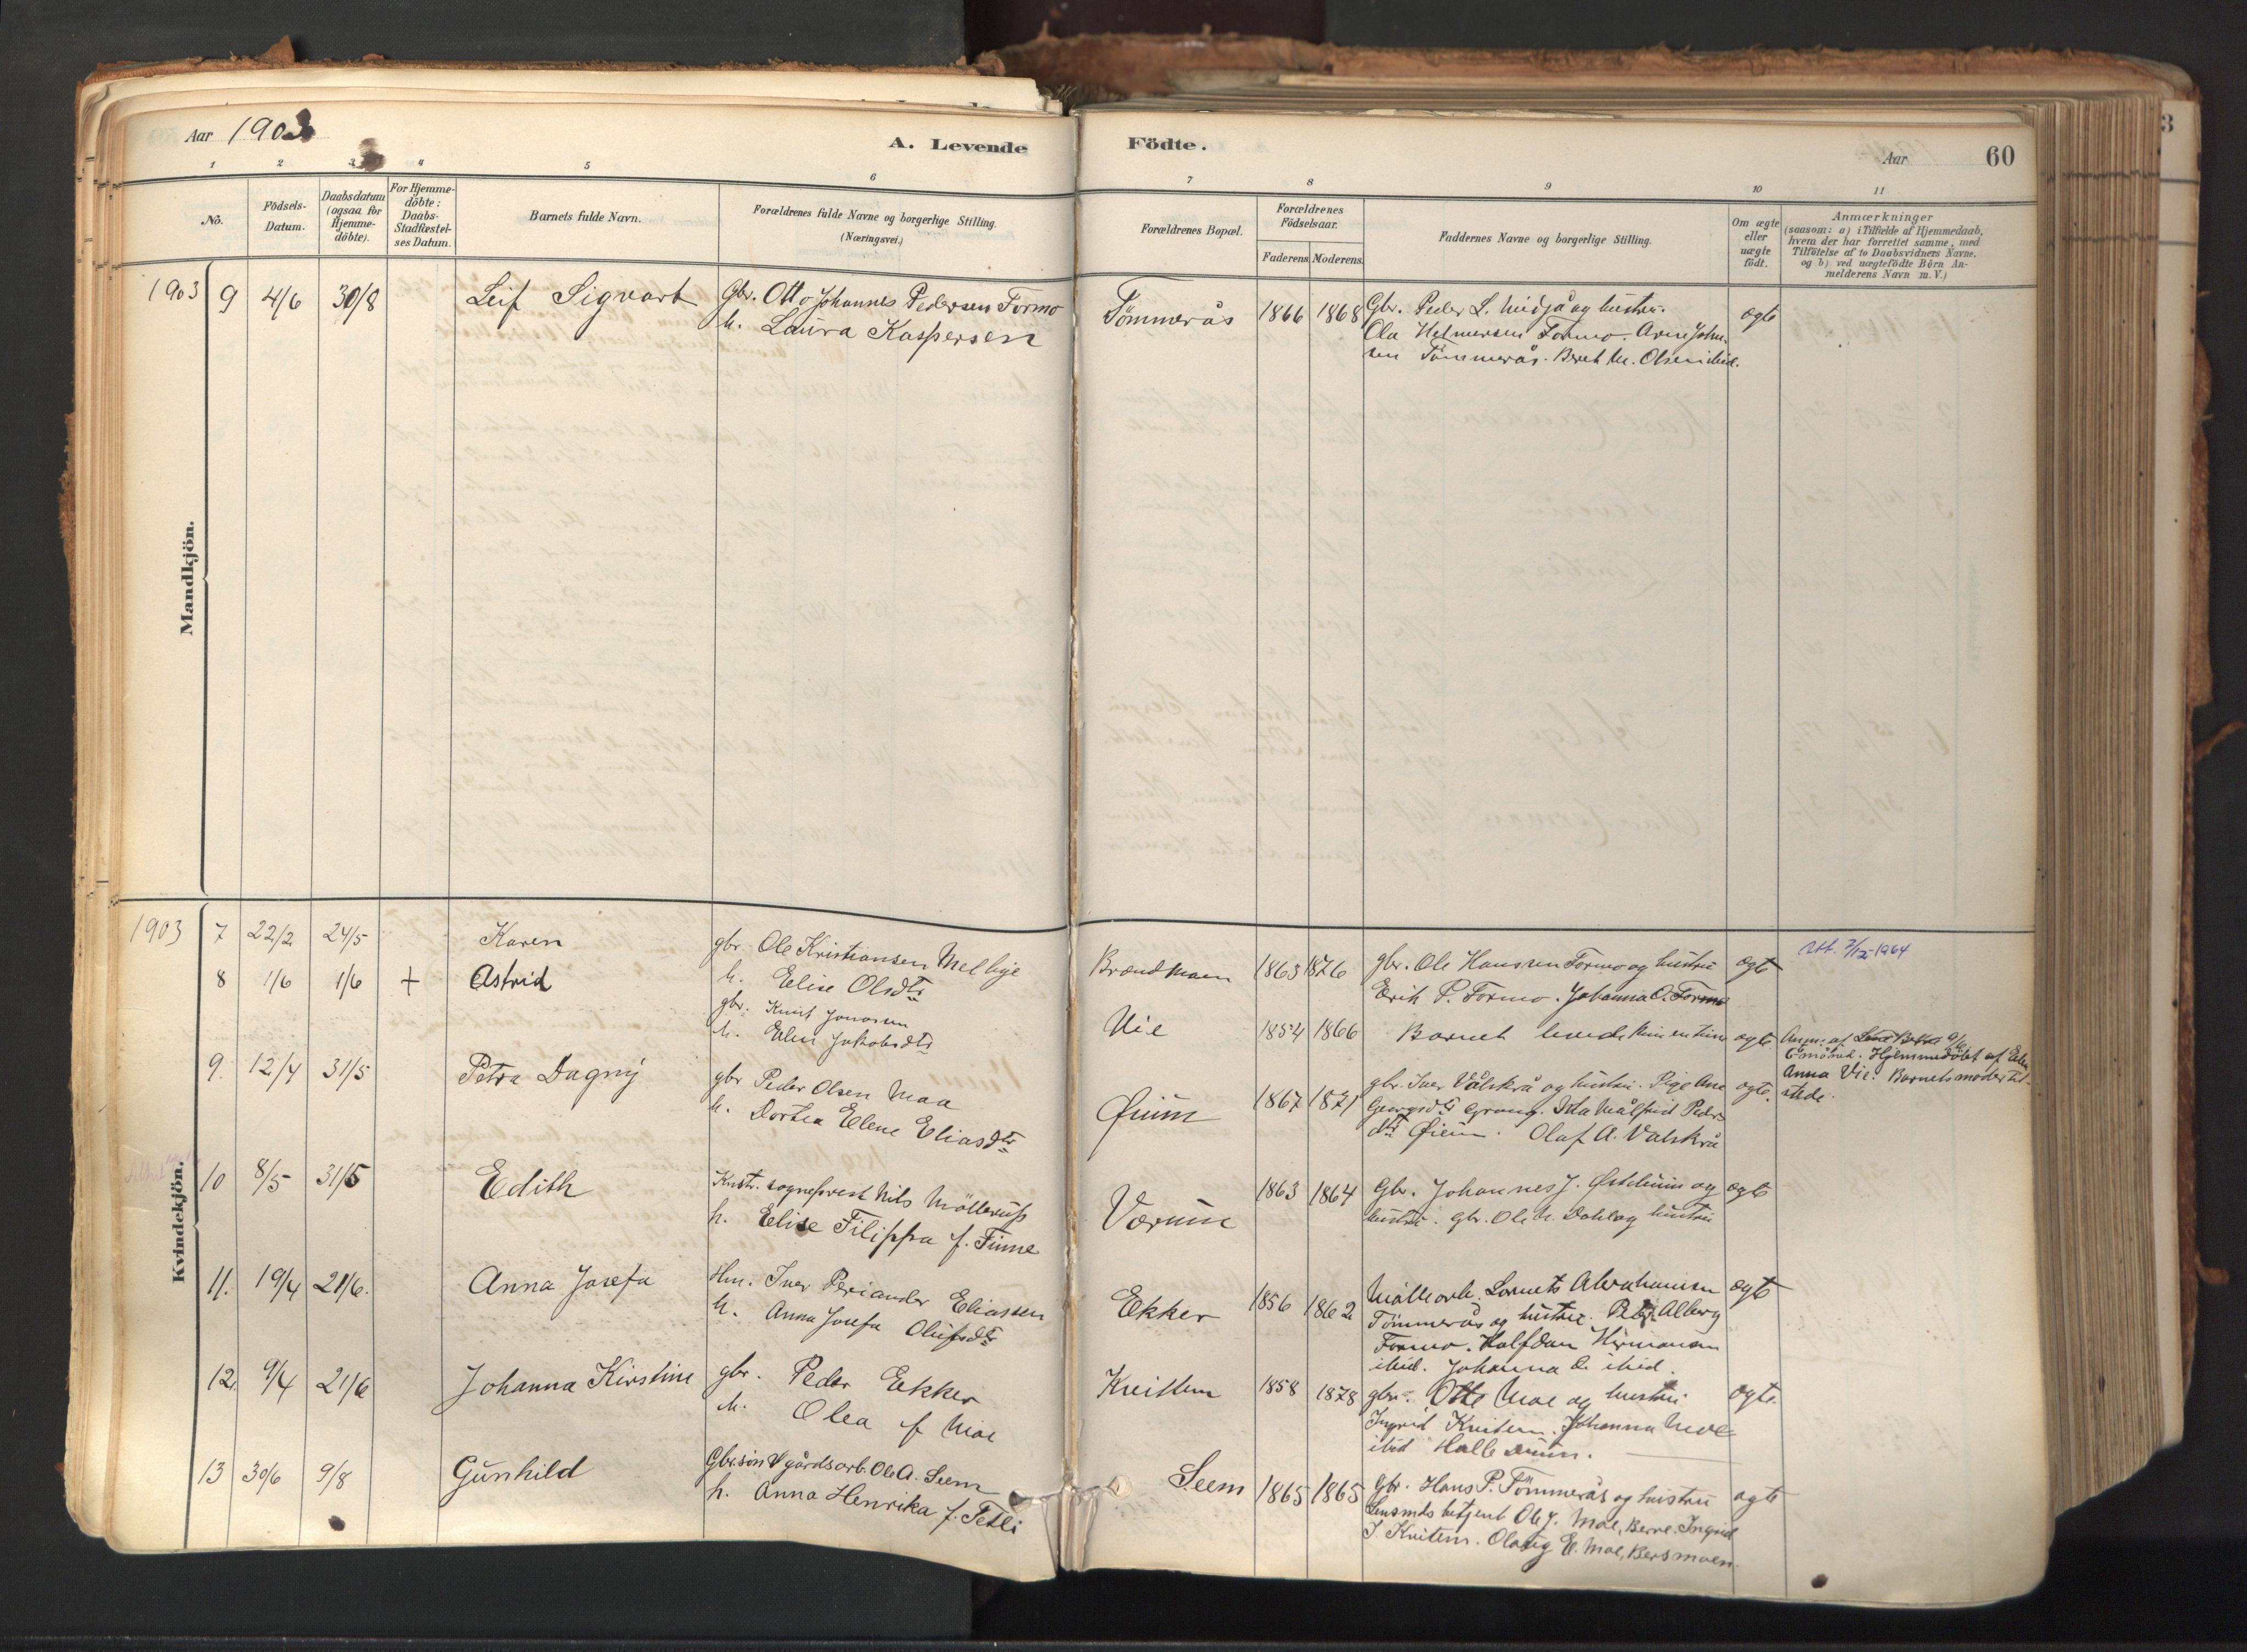 Aar 1903
A. Levende
Födte.
Aar
60
3
1 2 3 4 5 6 7 8 9 10 11
No.
Födsels-
Datum.
Daabsdatum
(ogsaa for
Hjemme-
döbte).
For Hjemme-
döbte:
Daabs-
Stadfæstel-
ses Datum.
Barnets fulde Navn.
Forældrenes fulde Navne og borgerlige Stilling.
(Næringsvei.)
Forældrenes Bopæl.
Forældrenes
Födselsaar.
Faderens Moderens
Faddernes Navne og borgerlige Stilling.
Om ægte
eller
uægte
födt.
Anmærkninger
(saasom: a) i Tilfælde af Hjemmedaab,
hvem der har forrettet samme, med
Tilföielse af to Daabsvidners Navne.
og b) ved uægtefödte Börn An-
melderens Navn m. V.)
Mandkjön.
1903 9 4/6 30/8 Leif Sigvart
Gbr. Otto Johannes Pedersen Formo
h. Laura Kaspersen
Tömmerås 1866 1868
Gbr. Peder L. Midjå og hustru.
Ola Helmersen Formo. Arne John-
sen Tömmerås. Beret M. Olsen ibid.
ægte
Kvindekjön.
1903 7 22/2 24/5 Karen
gbr. Ole Kristiansen Melhye
h. Elise Olsdtr
Brændmoen 1863 1876
gbr. Ole Hansen Formo og hustru
Erik P. Formo. Johanna O. Formo
ægte
7/12-1964
8 1/6 1/6 + Astrid
gbr. Knut Jonasen
h. Elen Jakobsdtr
Vie 1854 1866
Barnet levede kun en time
ægte
Anm: af
Hjemmedöbt af Elen
Anna Vie. Barnets moder til-
stede.
9. 12/4 31/5 Petra Dagny
gbr Peder Olsen Moa
h. Dortea Elene Eliasdtr
Øium 1867 1871
gbr. Iver Välskrå og hustru. Pige Ane
Georgsdtr Grong. Ida Målfrid Peders
dtr Øium. Olaf A. Valskrå
ægte.
10 8/5 31/5 Edith
Knstr. sogneprest Nils Möllerup
h. Elise Filippa f. Finne
Værum 1863 1864
Gbr. Johannes J. Östeheim og
hustru. gbr. Ole M. Dahl og hustru
ægte
11. 19/4 21/6. Anna Josefa
Hm. Iver Periander Eliassen
h. Anna Josefa Olufsdtr
Ekker 1856 1862
Möllearb. Lornets Abrahamsen
Tömmerås og hustru. Peter Alberg
Formo. Halfdan Hermansen
ibid. Johanna O. ibid.
ægte
12. 9/4 21/6 Johanna Kirstine
gbr. Peder Ekker
h. Olea f Moe
Kveittem 1858 1878
gbr. Otte Moe og hustru
Ingrid Kveitem. Johanna Moe
ibid Halle Duun.
ægte.
13 30/6 9/8 Gunhild
Gbr.sön & gårdsarb. Ole A. Seem
h. Anna Henrika f. Fetli
Seem 1865 1865
Gbr. Hans P. Tömmerås og hustru
Lensmds betjent Ole J. Moe, Berre. Ingrid
J Kveitem. Olaug E. Moe, Bersmoen.
ægte